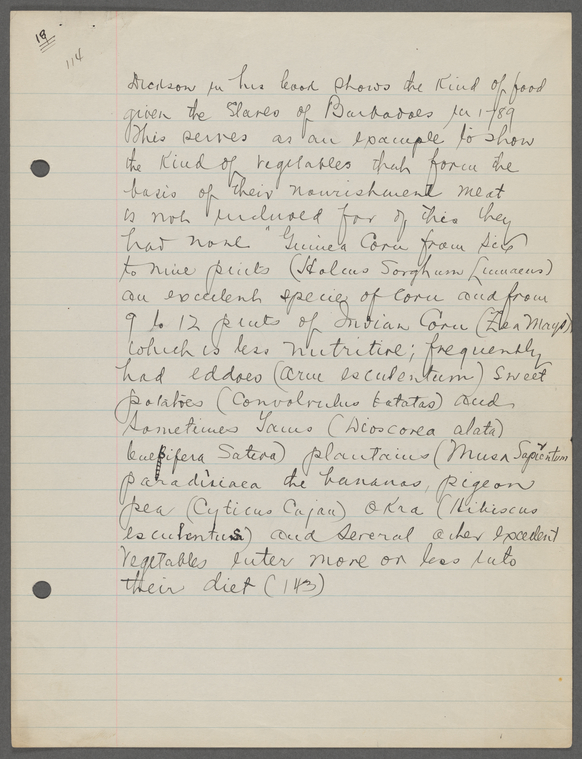 18
114
Dickson in his book shows the Kind of food
given the Slaves of Barbadoes in 1789
This serves as an example to show
the Kind of vegetables that form the
basis of their nourishment meat
is not induced for of this they
had none " Guinea Corn from six
to nine pints (Holcus Sorghum Linnaeus)
an excellent species of corn and from
9 to 12 pints of Indian Corn (Zea Mays)
which is less nutritive; frequently
had eddoes (arum esculentum) Sweet
potatoes (Convolvulus batatas) and
Sometimes Yams (Dioscorea alata)
Sativa) plantains (Musa Sapientum
paradisiaca the bananas, pigeon
pea (Cyticus Cajan) okra (Hibiscus
esculentus) and several other excedent
Vegetables enter more or less into
their diet (143)